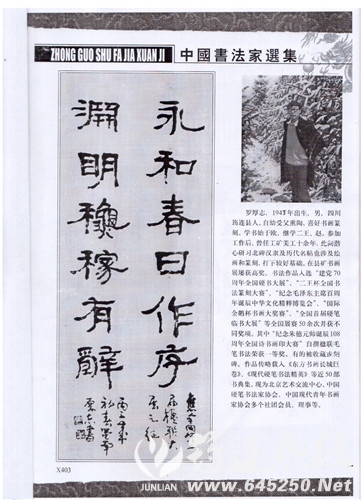 ZHONG GUO SHU FA JIA XUAN JI
中國書法家選集
永和春日作序
淵明穐稼有辭
罗厚志，1943年出生，男，四川
筠连县人，自幼受父熏陶，喜好书画篆
刻，学书始于欧，继学二王、赵，参加
工作后，曾任工矿美工十余年，此间潜
心研习北碑汉隶及历代名帖也涉及绘
画和篆刻，打下较好基础。在县矿书画
展屡获高奖。书法作品入选“建党70
周年全国硬书大展”、“二王杯全国书
法篆刻大赛”、“纪念毛泽东主席百周
年诞辰中华文化精粹博览会”、“国际
金鹅杯书画大奖赛”、“全国首届硬笔
临书大展”等全国展赛50余次并获不
同奖项，其中“纪念朱德元帅诞辰108
周年全国诗书画印大赛”自撰楹联毛
笔书法荣获一等奖。有的被收藏或刻
碑。作品传略载入《东方书画长城巨
卷》、《现代硬笔书法精英》等近50部
书典集。现为北京艺术交流中心、中国
硬笔书法家协会、中国现代青年书画
家协会多个社团会员、理事等。
X403
JUNLIAN
www.645250.Net